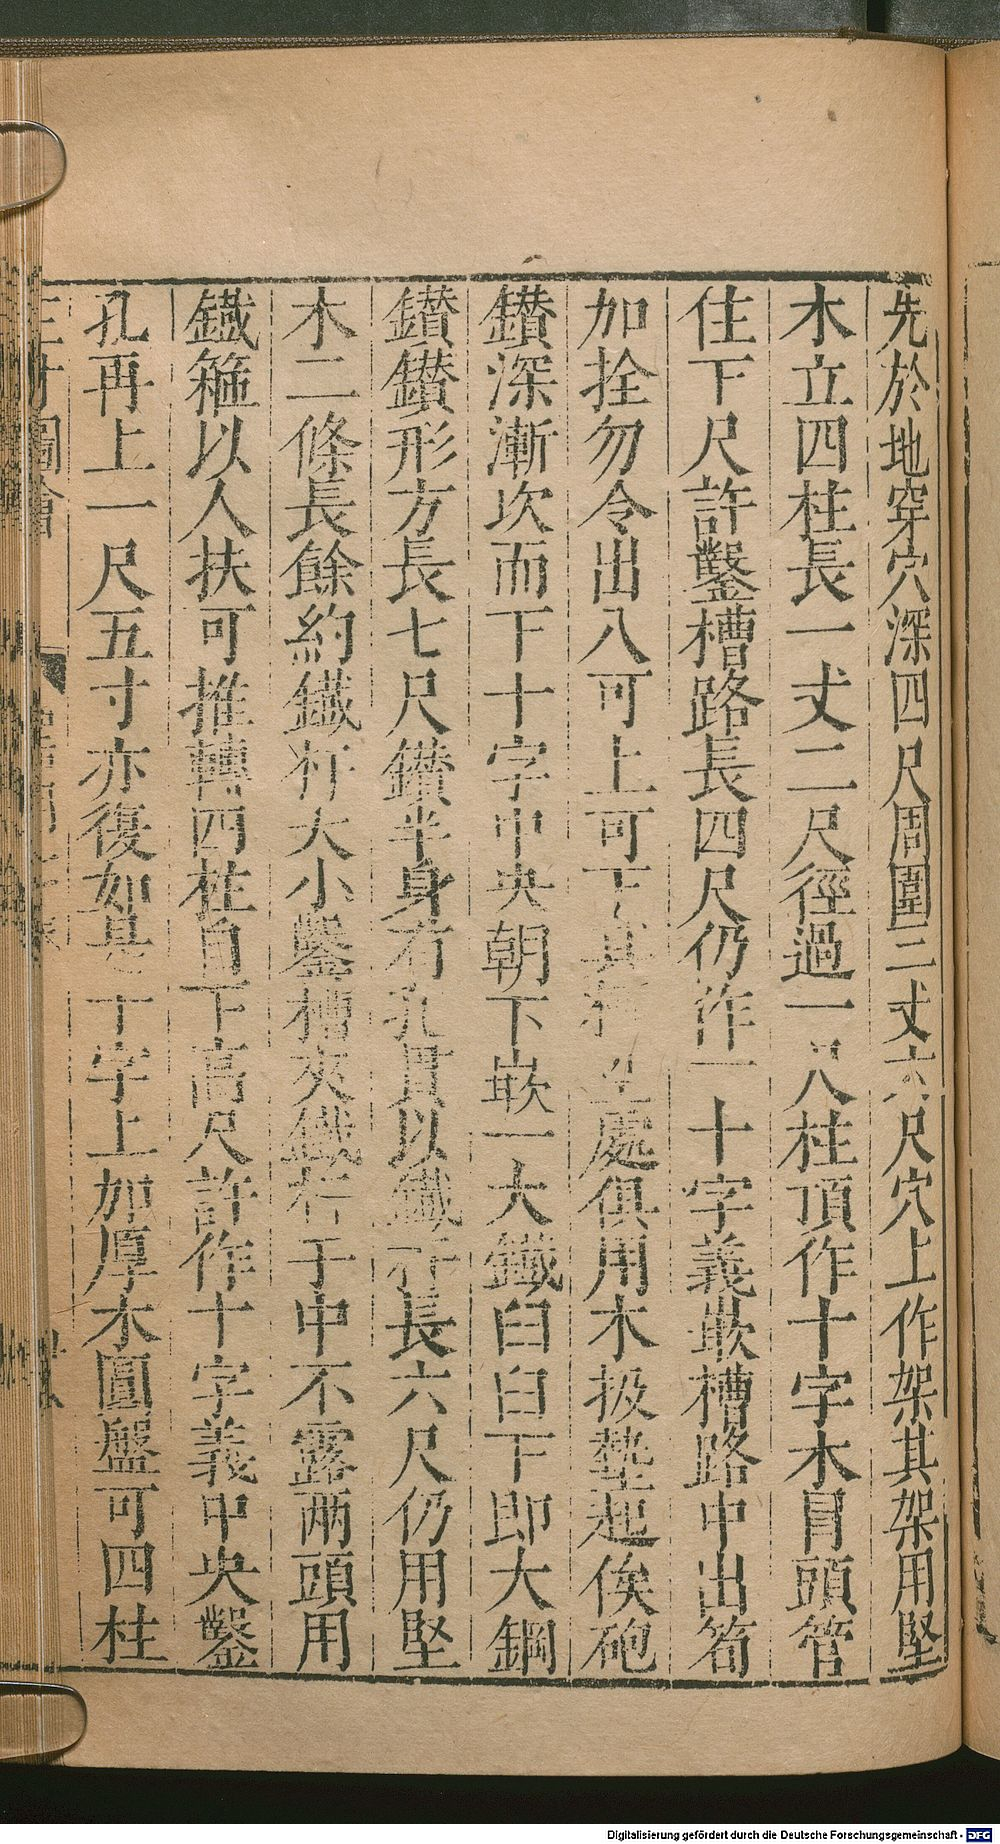 先於地穿穴深四尺周圍三丈六尺穴上作架其架用堅
木立四柱長一丈二尺徑過一尺柱頂作十字木冒頭管
住下尺許鑿槽路長四尺仍作一十字義嵌槽路中出筍
加拴勿令出入可上可下其 處俱用木扱墊起俟砲
鑽深漸次而下十字中央朝下嵌一大鐵臼臼下即大鋼
鑽鑽形方長七尺鑽半身有孔貫以鐵杆長六尺仍用堅
木二條長餘約鐵杆大小鑿槽夾鐵杆于中不露兩頭用
鐵箍以人扶可推轉四柱自下高尺許作十字義中央鑿
孔再上一尺五寸亦復如是十字上加厚木圓盤可四柱
三才圖會
Digitalisierung gefördert durch die Deutsche Forschungsgemeinschaft - DFG